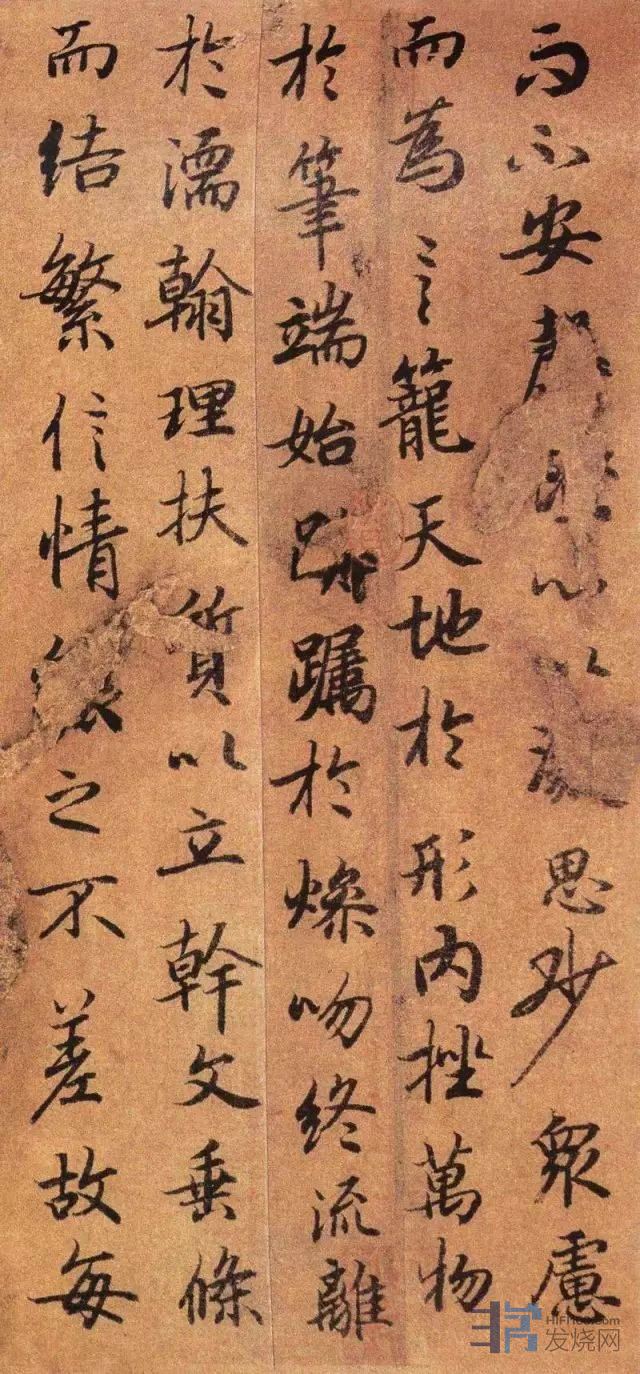 而不安心以思眇眾慮
而為言籠天地於形內挫萬物
於筆端始躅於燥吻終流離
於濡翰理扶質以立幹文垂條
而結繁信情之不差故每
发烧网